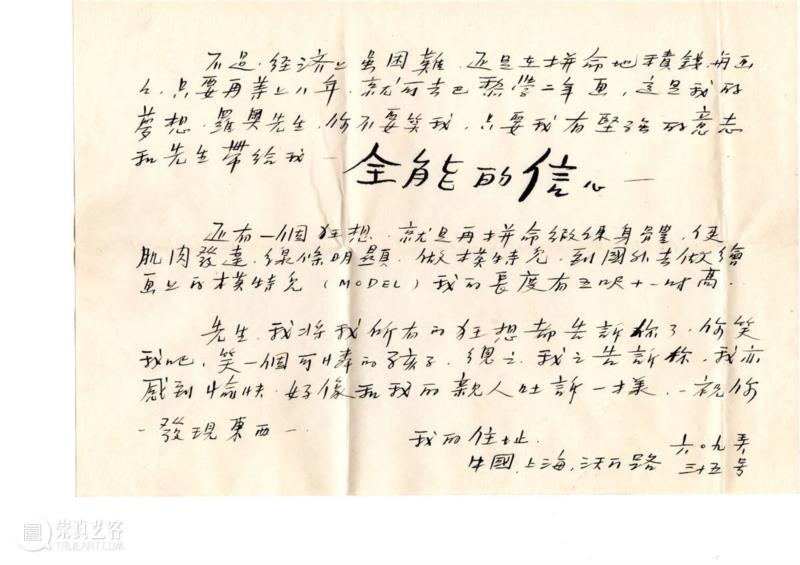 不过.经济上虽困難.还是在拼命地積錢.
只要再 上八年.就可去巴黎学二年画.这是我的
夢想.羅奥先生.你不要笑我.只要我有堅强的意志
和先生帶給我— 全能的信心—
还有一個狂想.就是再拼命锻鍊身體.使
肌肉發達.線條明顯.做模特兒.到國外去做繪
画上的模特兒(MODEL)我的長度有五呎十一吋高.
先生.我将我所有的狂想都告訴你了.你笑
我吧.笑一個可憐的孩子.總之.我之告訴你.我亦
感到愉快.好像和我的親人吐訴一樣.—祝你
—發現東西—.
我的住址. 六〇九弄
中國.上海. 路 三十五号
崇真艺客
TRUEART.COM